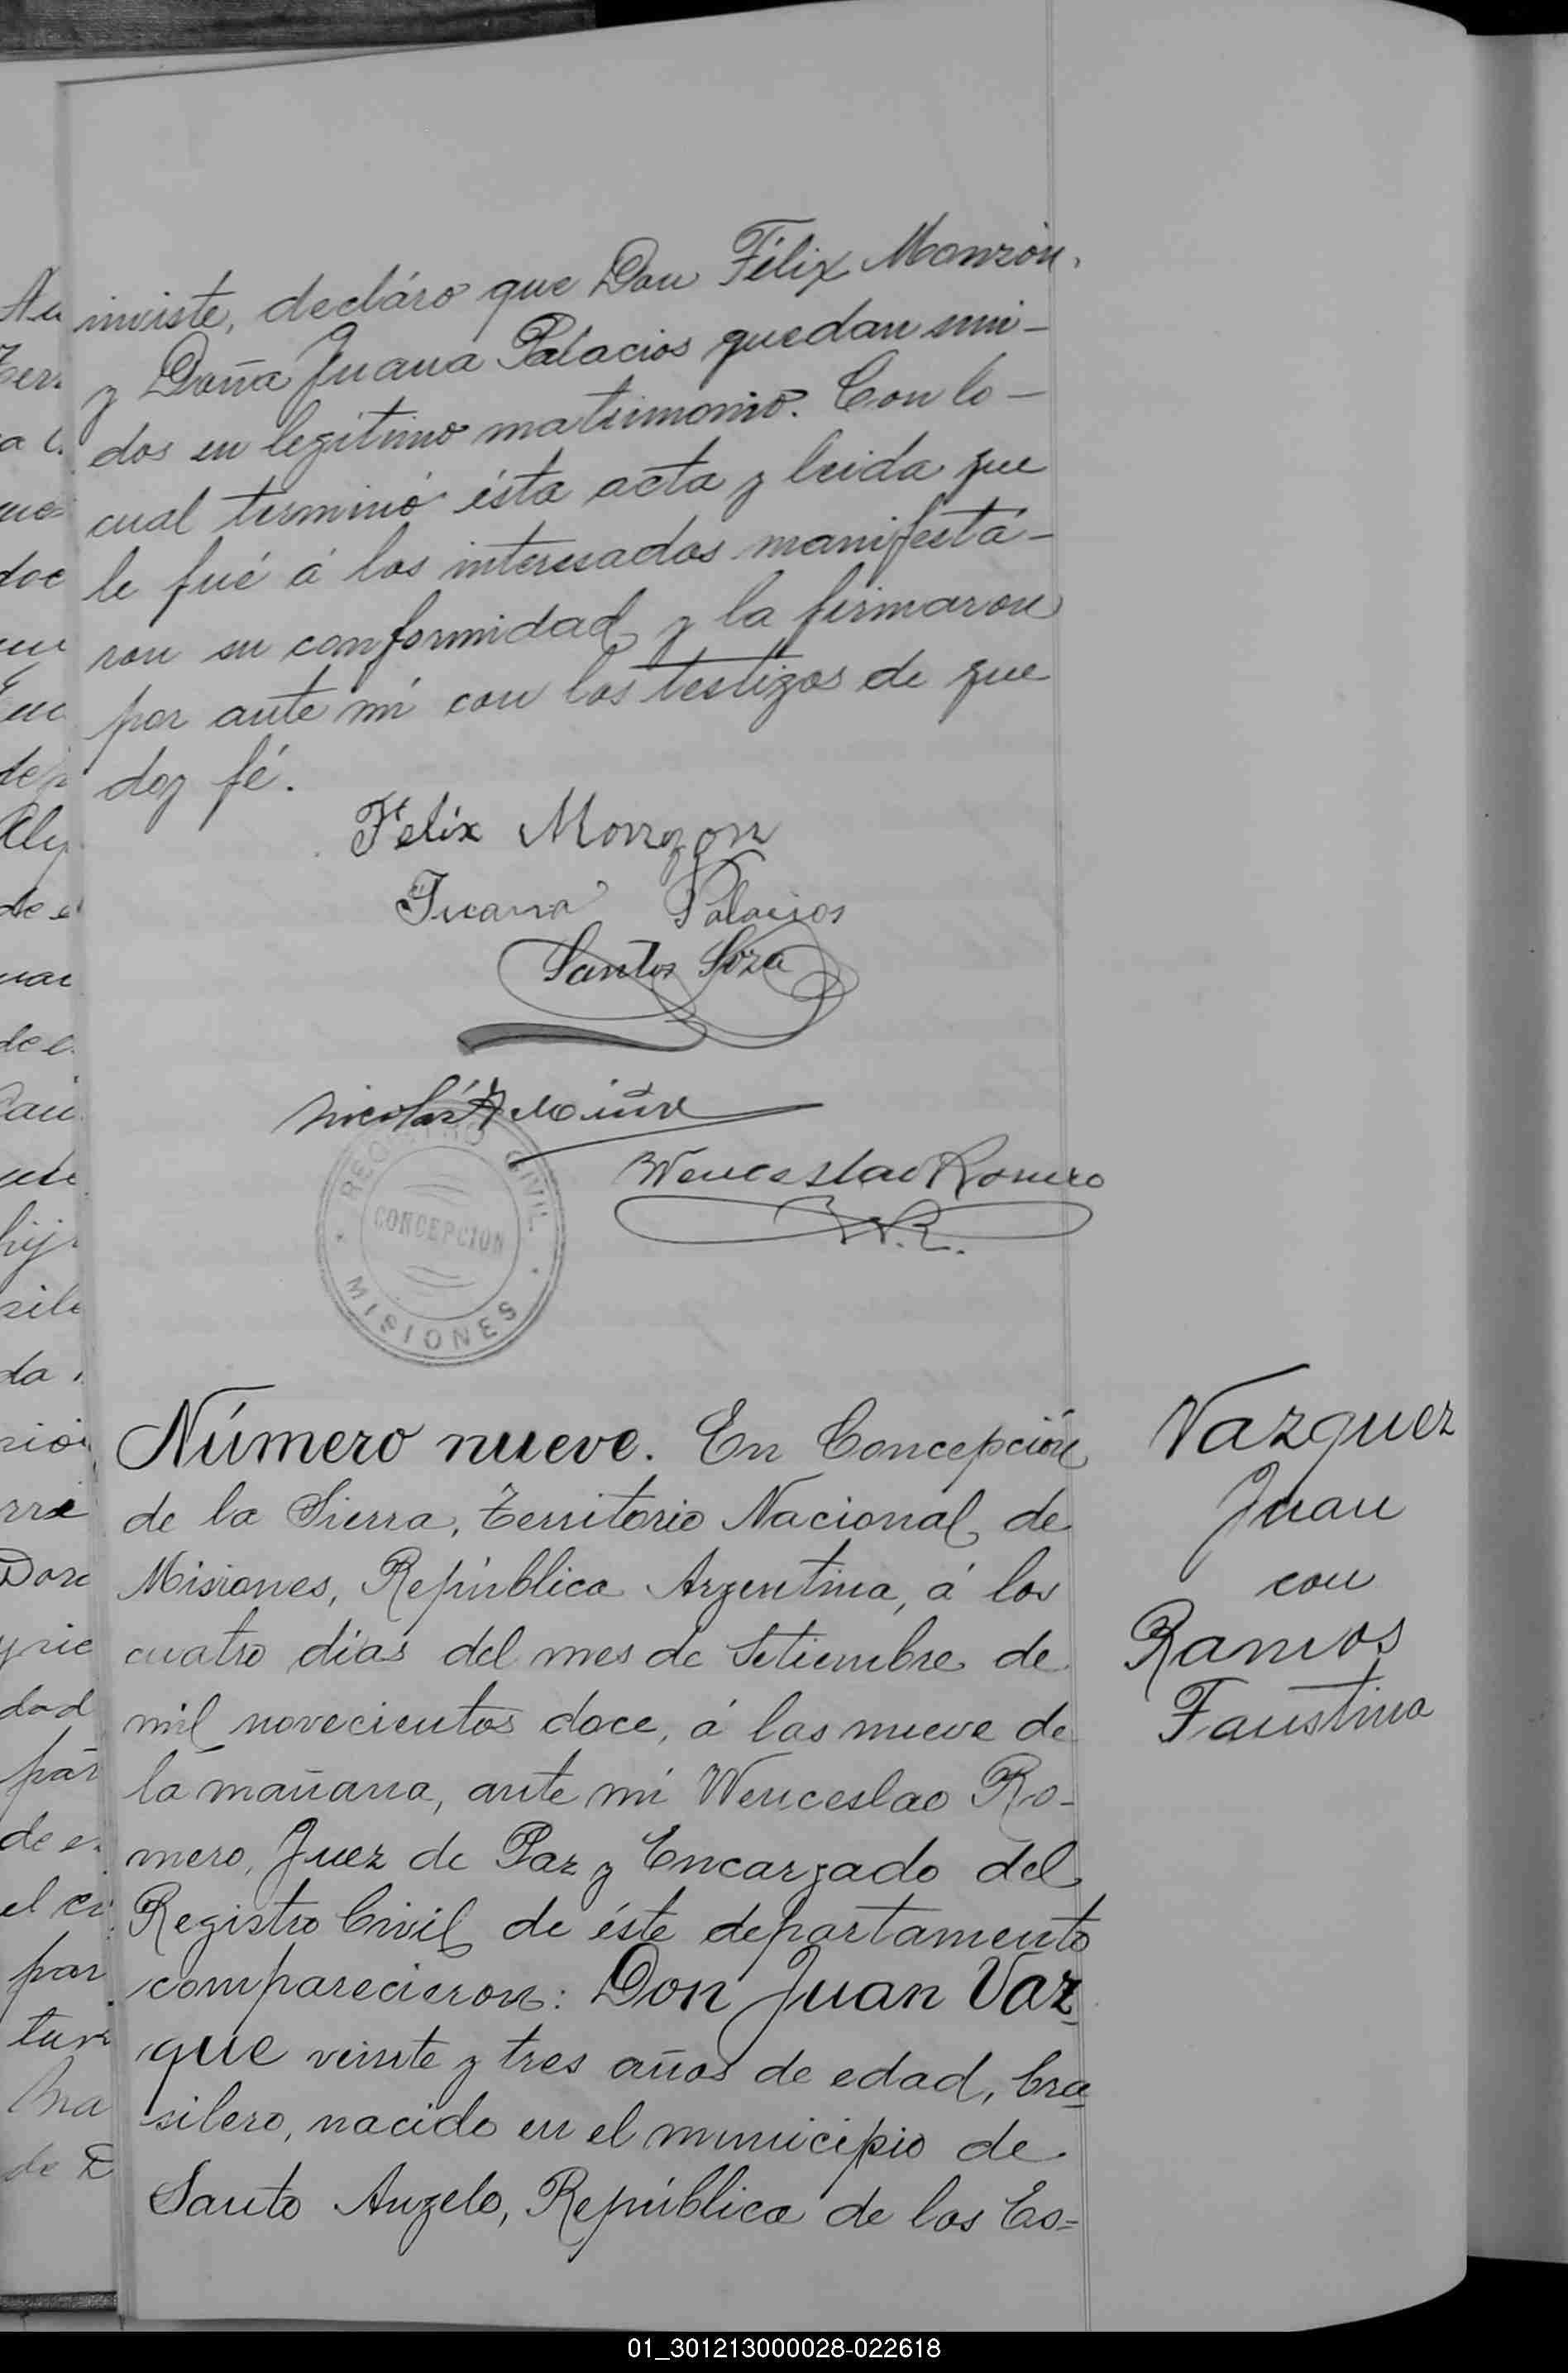 inviste, decláro que Don Félix Monzón.
y Doña Juana Palacios quedan uni-
dos en legítimo matrimonio. Con lo-
cual terminó ésta acta y leida que
le fué á los interesados manifestá-
ron su conformidad, y la firmaron
por ante mí con los testigos de que
doy fé.
Felix Monzon
Juana Palacios
Santos Soza
Nicolás
Wenceslao Romero
W.R.
REGISTRO CIVIL
CONCEPCION
MISIONES
Número nueve. En Concepción
de la Sierra, Territorio Nacional de
Misiones, República Argentina, á los
cuatro dias del mes de Setiembre de
mil novecientos doce, á las nueve de
la mañana, ante mí Wenceslao Ro-
mero, Juez de Paz y Encargado del
Registro Civil de éste departamento
comparecieron: Don Juan Vaz-
que veinte y tres años de edad, bra-
silero, nacido en el municipio de
Santo Angelo, República de los Es=
Vazquez
Juan
con
Ramos
Faustina
01_301213000028-022618